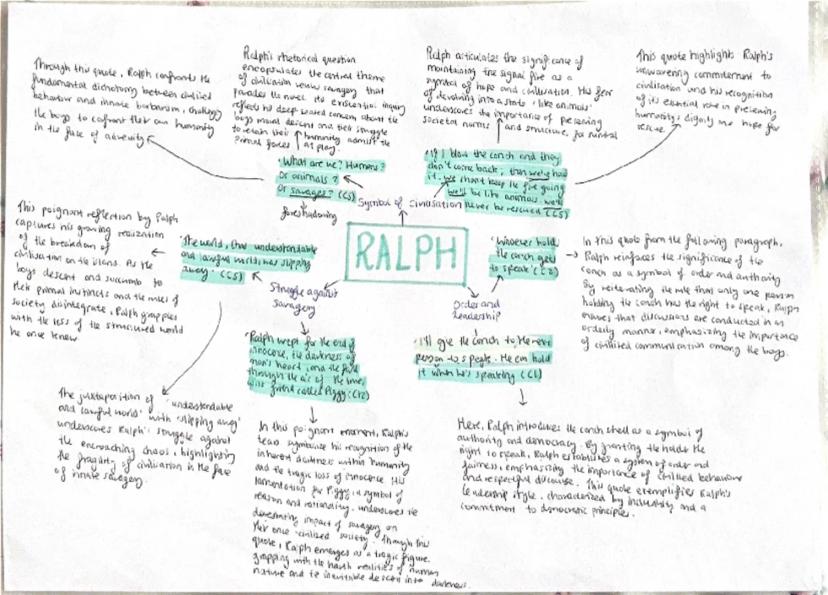 Through this quote, Ralph confronts the
fundamental dichotomy between civilised
behaviour and innate barbarism, challenging
the boys to confront their own humanity
in the face of adversity
Ralph's rhetorical question
encapsulates the central theme
of civilisation versus savagery that
pervades the novel. Its existential inquiry
reflects his deep-seated concern about the
boys moral descent and their struggle
to retain their humanity amidst the
primal forces at play.
Ralph articulates the significance of
maintaining the signal fire as a
symbol of hope and civilisation. His fear
of devolving into a state 'like animals'
underscores the importance of preserving
societal norms and structure, for survival
This quote highlights Ralph's
unwavering commitment to
civilisation and his recognition
of its essential role in preserving
humanity's dignity and hope for
rescue.
'What are we? Humans?
Or animals?
Or savages?' (C5)
foreshadowing
Symbol of civilisation
'If I blow the conch and they
don't come back, then we've had
it. We shan't keep the fire going
We'll be like animals. We'll
never be rescued' (C5)
RALPH
This poignant reflection by Ralph
captures his growing realization
of the breakdown of
civilisation on the island. As the
boys descent and succumb to
their primal instincts and the rules of
society disintegrate, Ralph grapples
with the loss of the structured world
he once knew
'The world, that understandable
and lawful world, was slipping
away.' (C5)
Struggle against
Savagery
'Whoever holds
the conch gets
to speak' (C2)
Order and
Leadership
In this quote from the following paragraph,
Ralph reinforces the significance of the
conch as a symbol of order and authority
By reiterating the rule that only one person
holding the conch has the right to speak, Ralph
ensures that discussions are conducted in an
orderly manner, emphasizing the importance
of civilised communication among the boys.
'Ralph wept for the end of
innocence, the darkness of
man's heart, and the fall
through the air of the true,
wise friend called Piggy' (C12)
'I'll give the conch to the next
person to speak. He can hold
it when he's speaking' (C2)
The juxtaposition of 'understandable
and lawful world' with 'slipping away'
underscores Ralph's struggle against
the encroaching chaos, highlighting
the fragility of civilisation in the face
of innate savagery.
In this poignant moment, Ralph's
tears symbolize his recognition of the
inherent darkness within humanity
and the tragic loss of innocence. His
lamentation for Piggy, a symbol of
reason and rationality, underscores the
devastating impact of savagery on
their once civilized society. Through this
quote, Ralph emerges as a tragic figure,
grappling with the harsh realities of human
nature and the inevitable descent into darkness.
Here, Ralph introduces the conch shell as a symbol of
authority and democracy. By granting the holder the
right to speak, Ralph establishes a system of order and
fairness, emphasizing the importance of civilised behaviour
and respectful discourse. This quote exemplifies Ralph's
leadership style, characterized by and a
commitment to democratic principles.